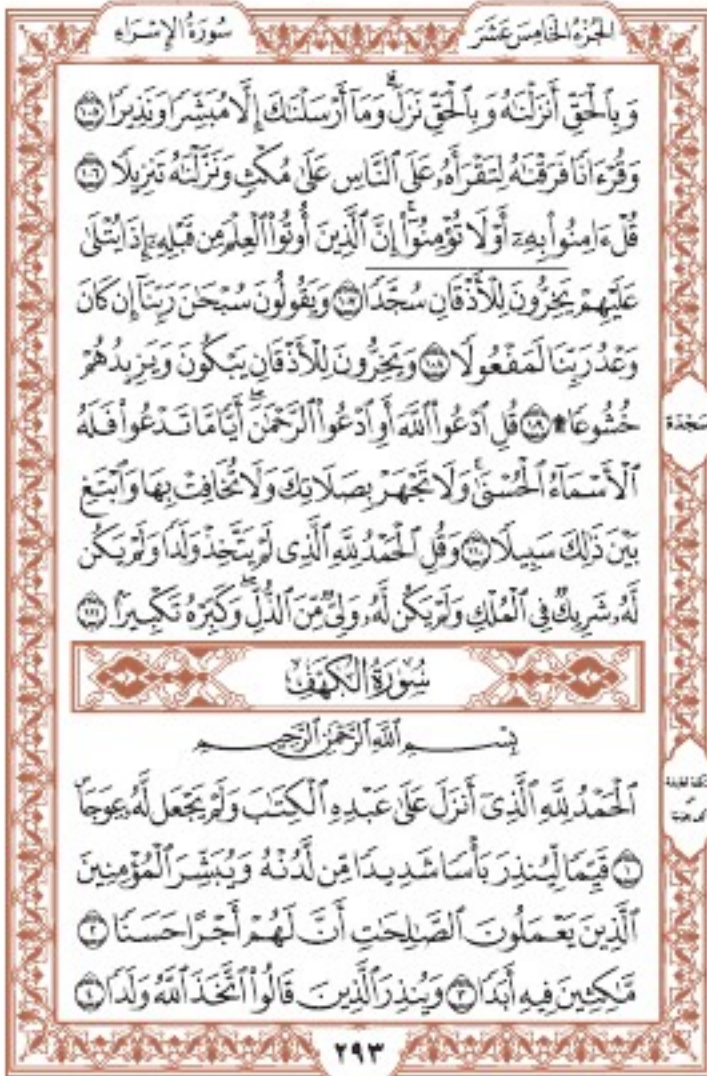 الجُزْءُ الخَامِسَ عَشَرَ
سُورَةُ الإِسْرَاءِ
وَبِٱلْحَقِّ أَنزَلْنَٰهُ وَبِٱلْحَقِّ نَزَلَ ۗ وَمَآ أَرْسَلْنَٰكَ إِلَّا مُبَشِّرًا وَنَذِيرًا ١٠٥
وَقُرْءَانًا فَرَقْنَٰهُ لِتَقْرَأَهُۥ عَلَى ٱلنَّاسِ عَلَىٰ مُكْثٍ وَنَزَّلْنَٰهُ تَنزِيلًا ١٠٦
قُلْ ءَامِنُوا۟ بِهِۦٓ أَوْ لَا تُؤْمِنُوٓا۟ ۚ إِنَّ ٱلَّذِينَ أُوتُوا۟ ٱلْعِلْمَ مِن قَبْلِهِۦٓ إِذَا يُتْلَىٰ
عَلَيْهِمْ يَخِرُّونَ لِلْأَذْقَانِ سُجَّدًا ١٠٧ وَيَقُولُونَ سُبْحَٰنَ رَبِّنَآ إِن كَانَ
وَعْدُ رَبِّنَا لَمَفْعُولًا ١٠٨ وَيَخِرُّونَ لِلْأَذْقَانِ يَبْكُونَ وَيَزِيدُهُمْ
خُشُوعًا ۩ ١٠٩ قُلِ ٱدْعُوا۟ ٱللَّهَ أَوِ ٱدْعُوا۟ ٱلرَّحْمَٰنَ ۖ أَيًّا مَّا تَدْعُوا۟ فَلَهُ
سَجْدَة
ٱلْأَسْمَآءُ ٱلْحُسْنَىٰ ۚ وَلَا تَجْهَرْ بِصَلَاتِكَ وَلَا تُخَافِتْ بِهَا وَٱبْتَغِ
بَيْنَ ذَٰلِكَ سَبِيلًا ١١٠ وَقُلِ ٱلْحَمْدُ لِلَّهِ ٱلَّذِى لَمْ يَتَّخِذْ وَلَدًا وَلَمْ يَكُن
لَّهُۥ شَرِيكٌ فِى ٱلْمُلْكِ وَلَمْ يَكُن لَّهُۥ وَلِىٌّ مِّنَ ٱلذُّلِّ ۖ وَكَبِّرْهُ تَكْبِيرًۢا ١١١
سُورَةُ الكَهْفِ
بِسْمِ ٱللَّهِ ٱلرَّحْمَٰنِ ٱلرَّحِيمِ
ٱلْحَمْدُ لِلَّهِ ٱلَّذِىٓ أَنزَلَ عَلَىٰ عَبْدِهِ ٱلْكِتَٰبَ وَلَمْ يَجْعَل لَّهُۥ عِوَجَا ۜ
١ قَيِّمًا لِّيُنذِرَ بَأْسًا شَدِيدًا مِّن لَّدُنْهُ وَيُبَشِّرَ ٱلْمُؤْمِنِينَ
ٱلَّذِينَ يَعْمَلُونَ ٱلصَّٰلِحَٰتِ أَنَّ لَهُمْ أَجْرًا حَسَنًا ٢
مَّٰكِثِينَ فِيهِ أَبَدًا ٣ وَيُنذِرَ ٱلَّذِينَ قَالُوا۟ ٱتَّخَذَ ٱللَّهُ وَلَدًا ٤
٢٩٣